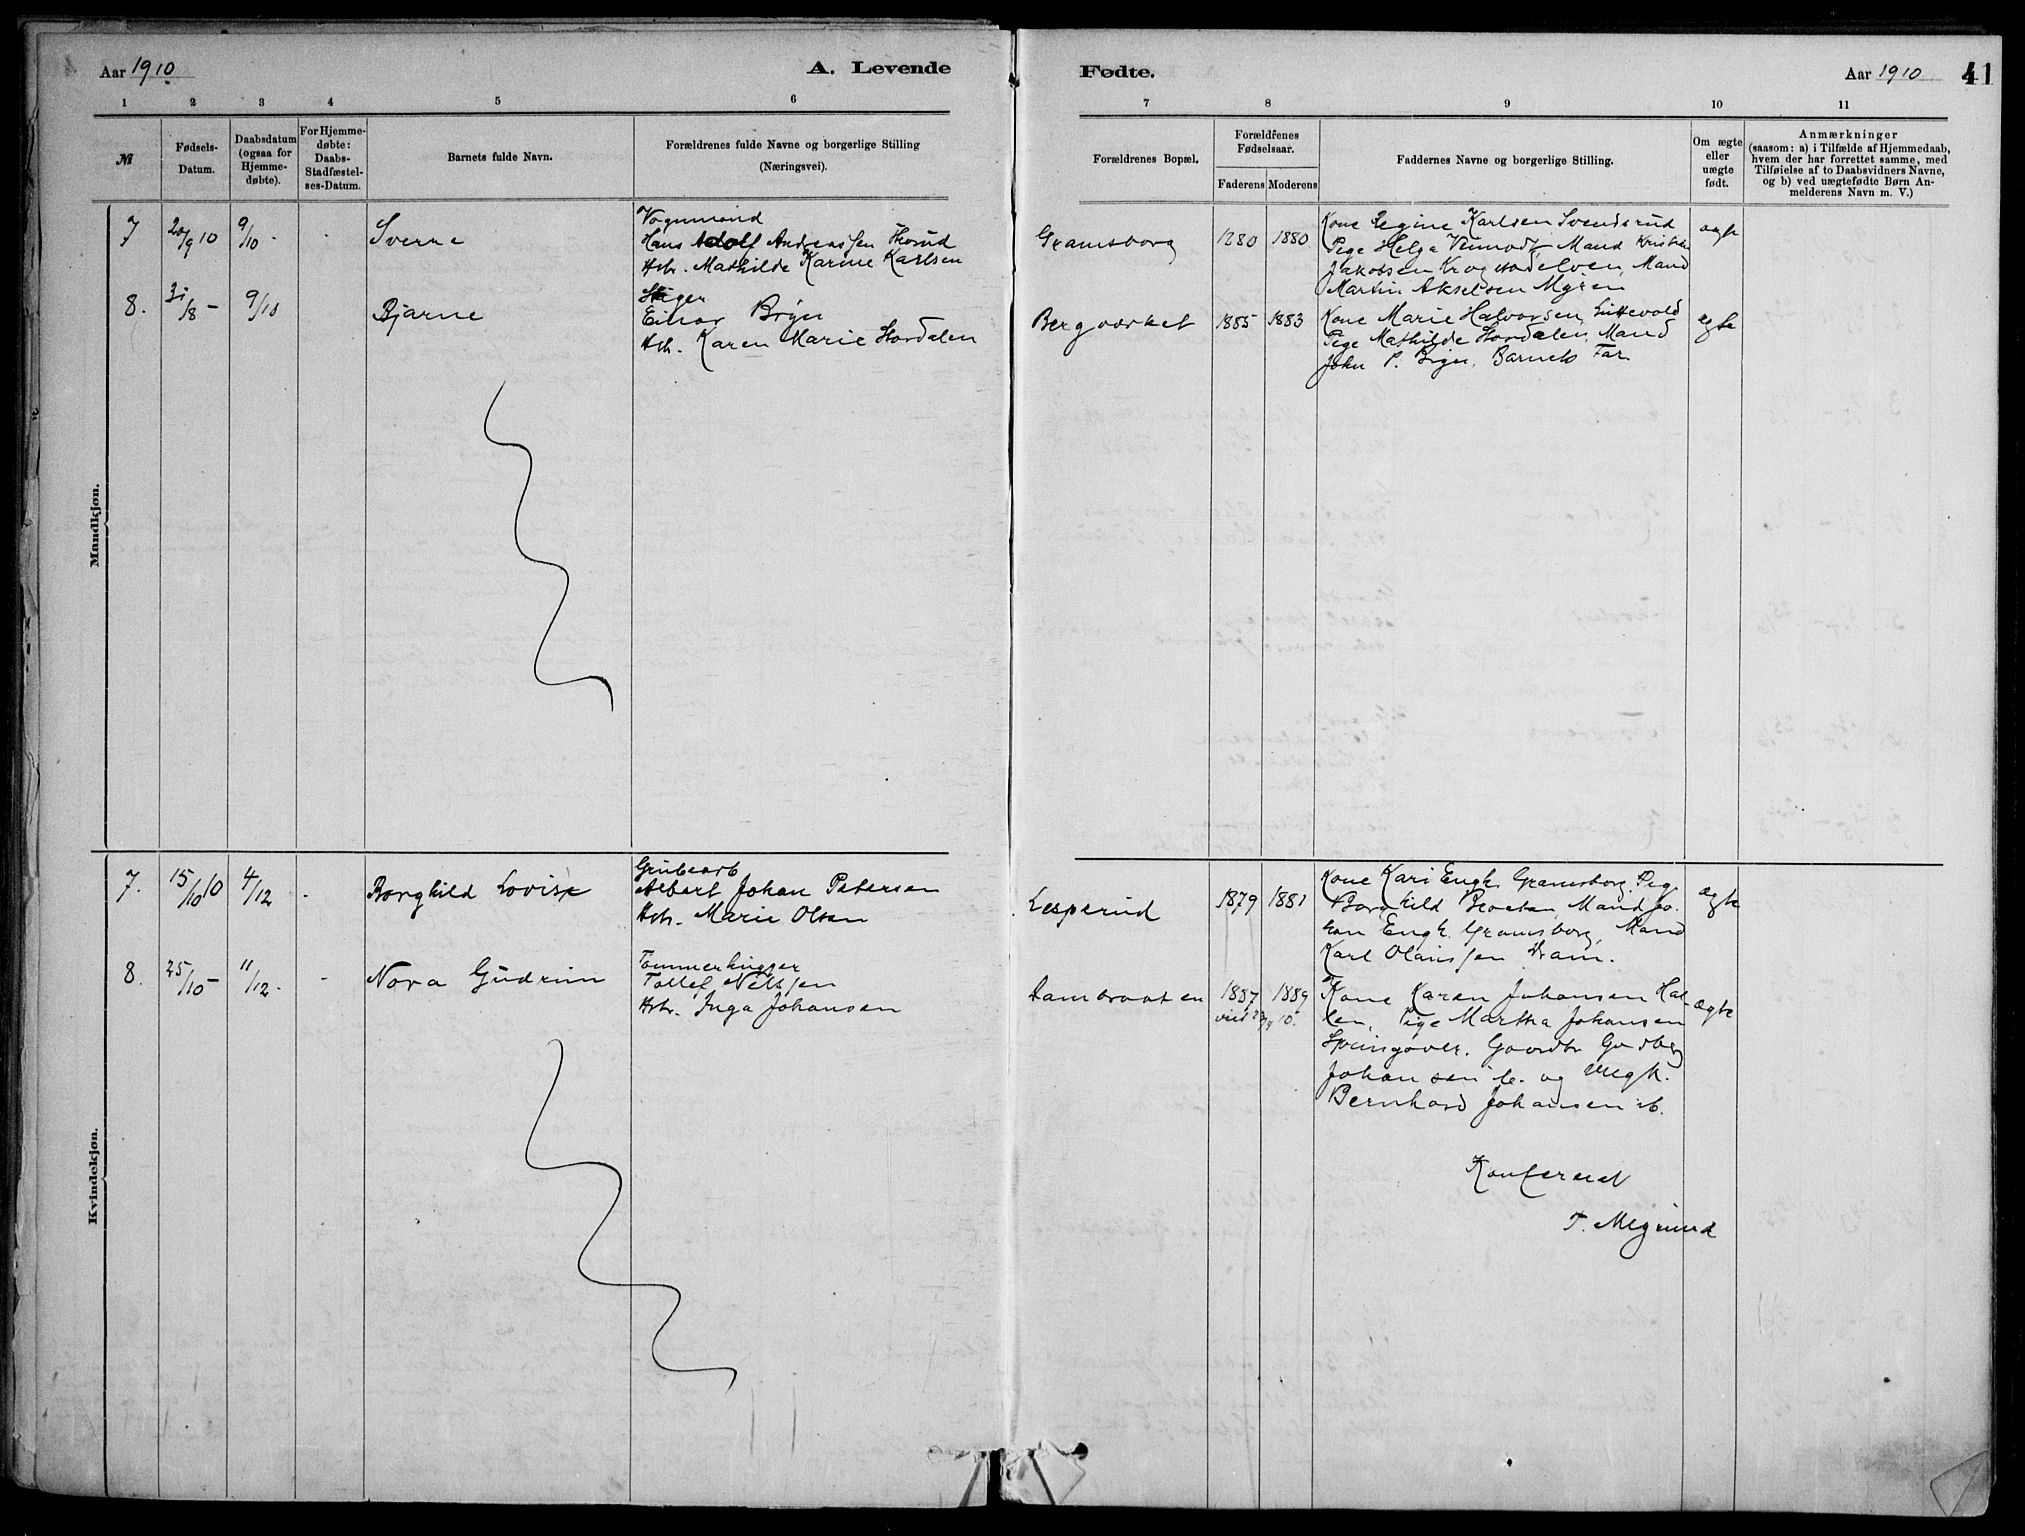 Aar 1910
A. Levende
Fødte.
Aar 1910
41
1 2 3 4 5 6 7 8 9 10 11
№
Fødsels-
Datum.
Daabsdatum
(ogsaa for
Hjemme-
døbte).
For Hjemme-
døbte:
Daabs-
Stadfæstel-
ses-Datum.
Barnets fulde Navn.
Forældrenes fulde Navne og borgerlige Stilling
(Næringsvei).
Forældrenes Bopæl.
Forældrenes
Fødselsaar.
Faderens Moderens
Faddernes Navne og borgerlige Stilling.
Om ægte
eller
uægte
født.
Anmærkninger
(saasom: a) i Tilfælde af Hjemmedaab,
hvem der har forrettet samme, med
Tilføielse af to Daabsvidners Navne,
og b) ved uægtefødte Børn An-
melderens Navn m. V.)
Mandkjøn.
7
20/9 10
9/10 -
-
Sverre
Vognmand
Hans Adolf Andreassen
Htr. Mathilde Karine Karlsen
Gramsborg
1880
1880
Kone Regine Karlsen Svendsrud
Pige Helga Mand Kristian
Jakobsen Krogstadelven, Mand
Martin Akselsen Myren
ægte
8.
31/8 -
9/10
Bjarne
Stiger
Einar Bryn
Htr. Karen Marie Stordalen
Bergværket
1885
1883
Kone Marie Halvorsen,
Pige Mathilde Stordalen, Mand
John P. Bryn, Barnets Far
ægte
Kvindekjøn.
7.
15/10 10
4/12
-
Borghild Lovise
Grubearb
Albert Johan Petersen
Htr. Marie Olsen
Lesperud
1879
1881
Kone Kari Engh Gramsborg, Pige
Borghild Braaten, Mand Jo-
han Engh Gramsborg, Mand
Karl Olaussen Dram.
ægte
8.
25/10 -
11/12 -
-
Nora Gudrun
Tømmerhugger
Tollef Nilssen
Htr. Inga Johansen
Dambraaten
1887
1889
viet 10.
Kone Karen Johansen
Pige Martha Johansen
Gaardbr Gudbr
Johansen ib. og Ungk.
Bernhard Johansen ib.
ægte
Konfereret
T.